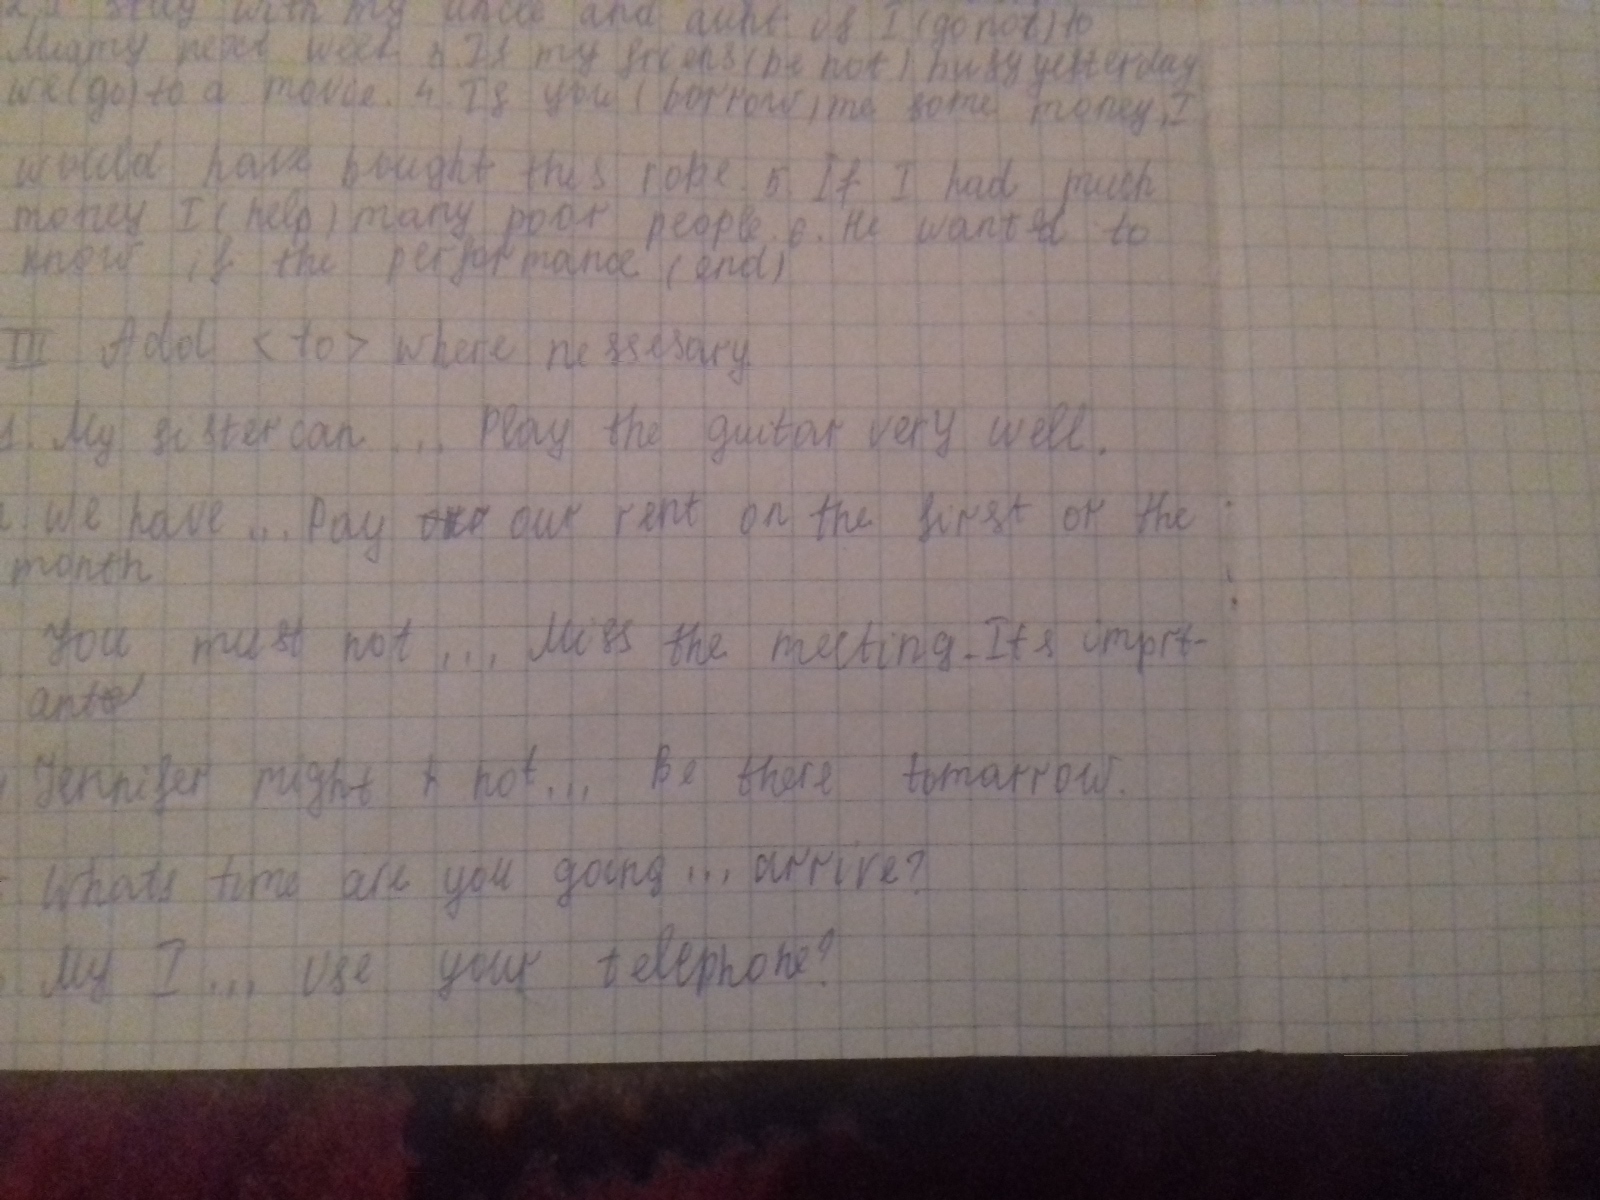 stay with my uncle and aunt if I (go not) to
Miamy next week 3. If my friens (be not) busy yesterday
we (go) to a movie. 4. If you (borrow) me some money, I
would have bought this robe. 5. If I had much
money I (help) many poor people. 6. He wanted to
know if the performance (end)
III Add <to> where nessesary
1. My sister can ... Play the guitar very well.
2. We have ... Pay our rent on the first or the
month
You must not ... Miss the meeting. Its imprt-
ant
Jennifer might not ... Be there tomarrow.
Whats time are you going ... arrive?
My I ... use your telephone?